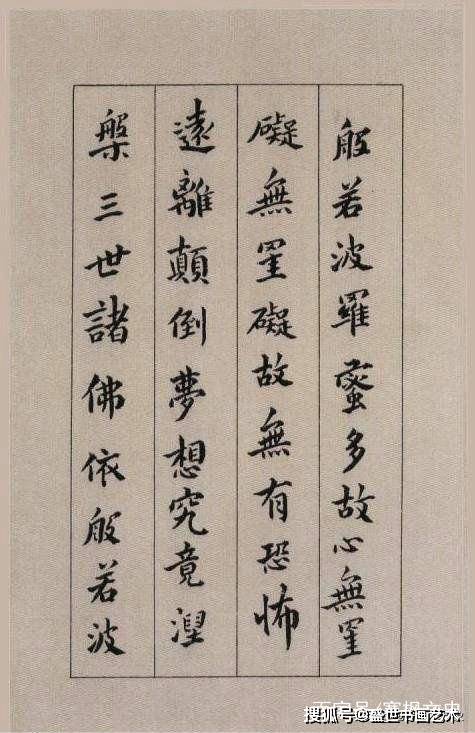 般若波羅蜜多故心無罣
礙無罣礙故無有恐怖
遠離顛倒夢想究竟涅
槃三世諸佛依般若波
搜狐号@盛世书画艺术